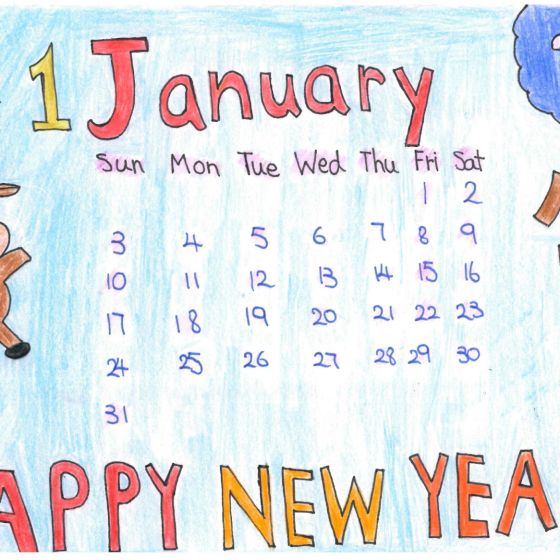 1 January
Sun Mon Tue Wed Thu Fri Sat
1 2
3 4 5 6 7 8 9
10 11 12 13 14 15 16
17 18 19 20 21 22 23
24 25 26 27 28 29 30
31
APPY NEW YEA